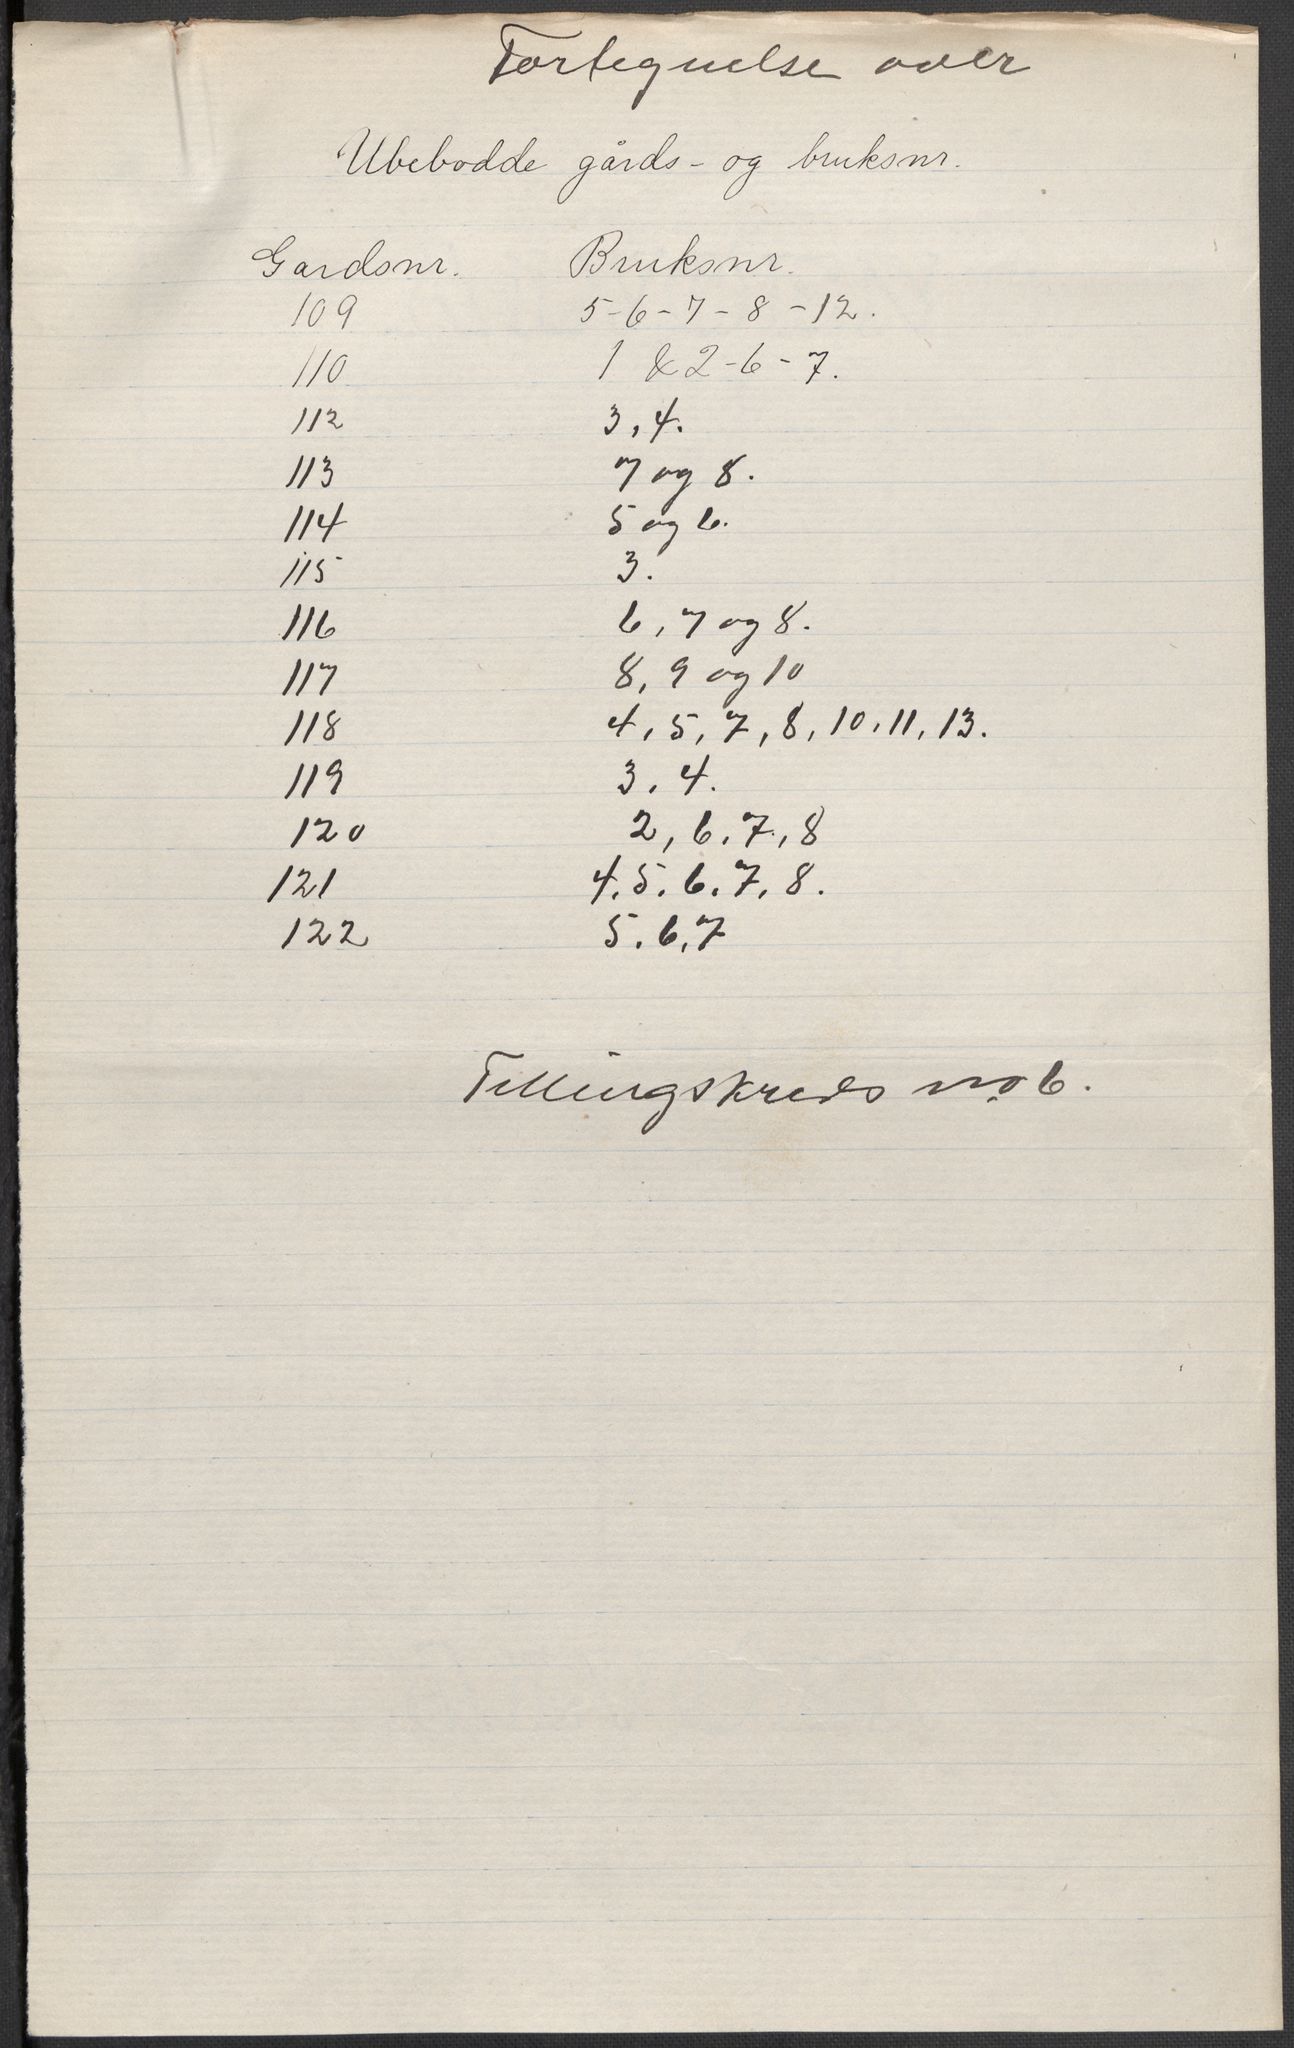 Fortegnelse over
Ubebodde gårds- og bruksnr.
Gardsnr. Bruksnr.
109 5-6-7-8-12.
110 1 & 2-6-7.
112 3, 4.
113 7 og 8.
114 5 og 6.
115 3.
116 6, 7 og 8.
117 8, 9 og 10
118 4, 5, 7, 8, 10, 11, 13.
119 3, 4.
120 2, 6, 7, 8
121 4, 5, 6, 7, 8.
122 5, 6, 7
Tellingskreds no 6.